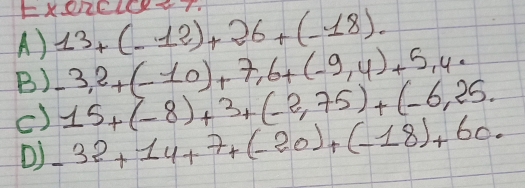 Exercice 4.
A) 13 + (-12) + 26 + (-18).
B) -3,2 + (-10) + 7,6 + (-9,4) + 5,4.
C) 15 + (-8) + 3 + (-2,75) + (-6,25.
D) -32 + 14 + 7 + (-20) + (-18) + 60.